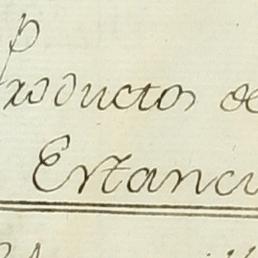 Productos de
Estanc